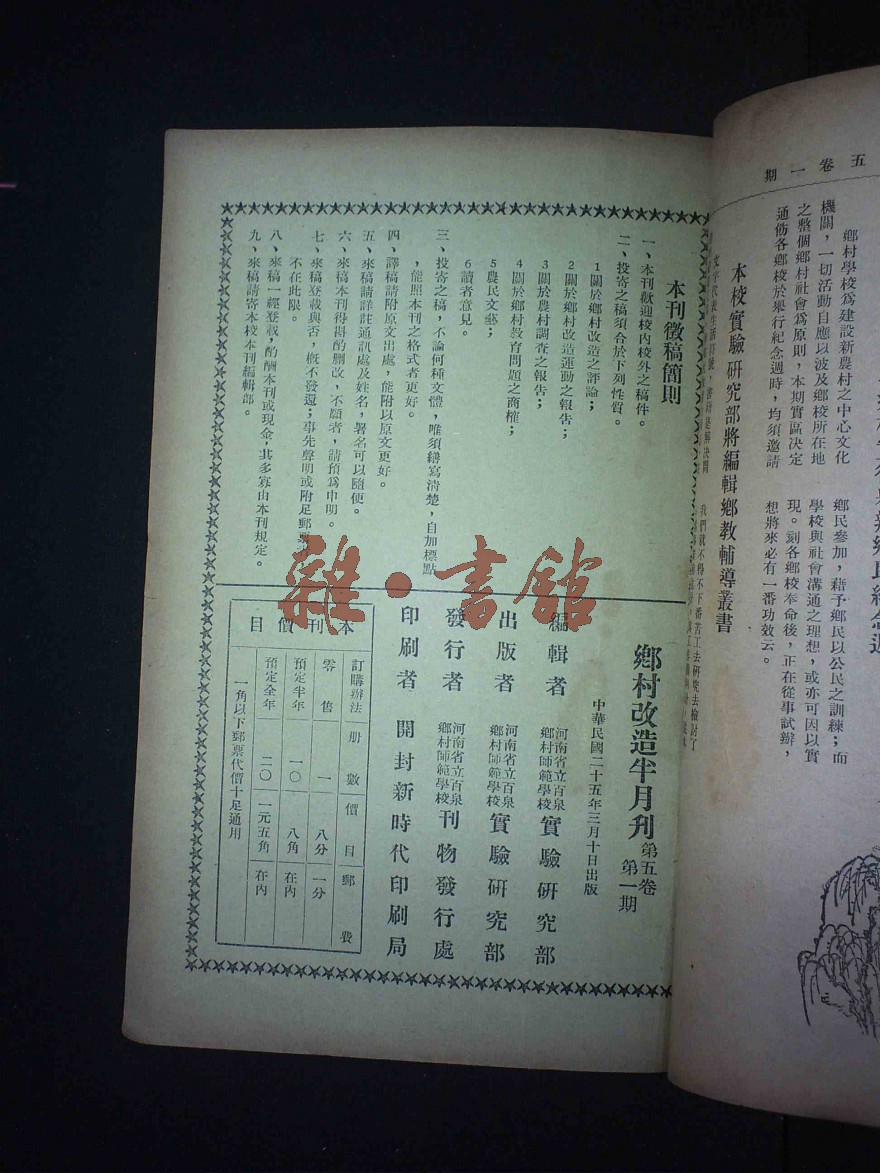 五卷一期
鄉村學校爲建設新農村之中心文化
機關，一切活動自應以波及鄉校所在地
之整個鄉村社會爲原則，本期實區決定
通飭各鄉校於舉行紀念週時，均須邀請
鄉民參加，藉予鄉民以公民之訓練；而
學校與社會溝通之理想，或亦可因以實
現。刻各鄉校奉命後，正在從事試辦，
想將來必有一番功效云。
本校實驗研究部將編輯鄉教輔導叢書
我們就不得不下番苦工去研究去檢討了
本刊徵稿簡則
一、本刊歡迎校內校外之稿件。
二、投寄之稿須合於下列性質。
1關於鄉村改造之評論；
2關於鄉村改造運動之報告；
3關於農村調查之報告；
4關於鄉村教育問題之商榷；
5農民文藝；
6讀者意見。
三、投寄之稿，不論何種文體，唯須繕寫清楚，自加標點
，能照本刊之格式者更好。
四、譯稿請附原文出處，能附以原文更好。
五、來稿請詳註通訊處及姓名，署名可以隨便。
六、來稿本刊得斟酌刪改，不願者，請預爲申明。
七、來稿登載與否，槪不發還；事先聲明或附足郵票
不在此限。
八、來稿一經登載，酌酬本刊或現金，其多寡由本刊規定。
九、來稿請寄本校本刊編輯部。
雜·書館
鄉村改造半月刋 第五卷 第一期
中華民國二十五年三月十日出版
編輯者 河南省立百泉鄉村師範學校 實驗研究部
出版者 河南省立百泉鄉村師範學校 實驗研究部
發行者 河南省立百泉鄉村師範學校 刊物發行處
印刷者 開封新時代印刷局
本刊價目
訂購辦法 册數 價目 郵費
零售 一 八分 一分
預定半年 一〇 八角 在內
預定全年 二〇 一元五角 在內
一角以下郵票代價十足通用